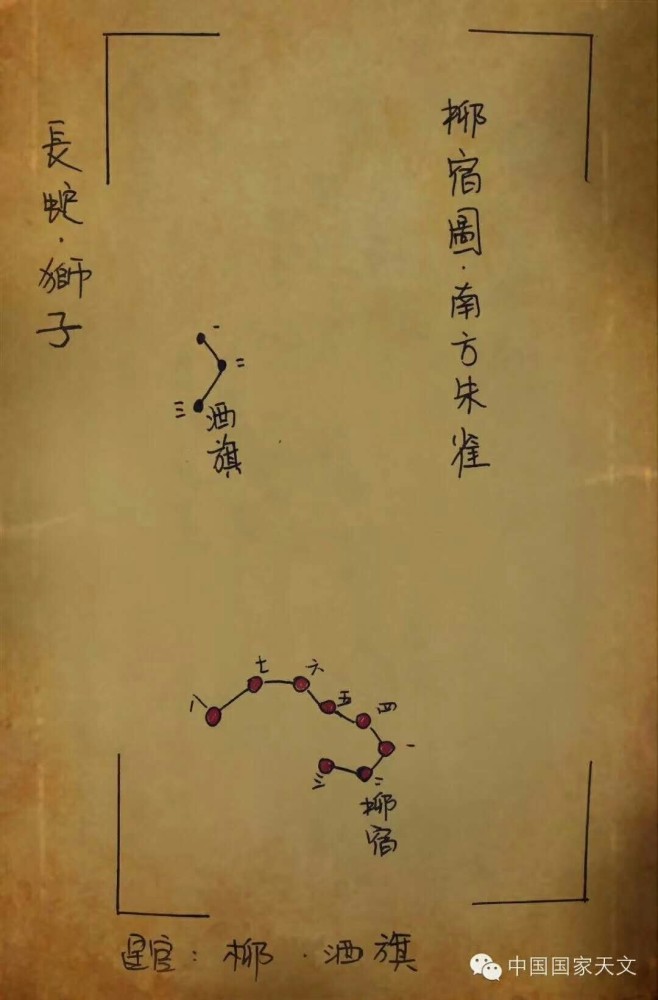 柳宿圖·南方朱雀
長蛇·獅子
一
二
三
酒旗
七
六
八
五
四
一
三
二
柳宿
星官：柳·酒旗
中国国家天文